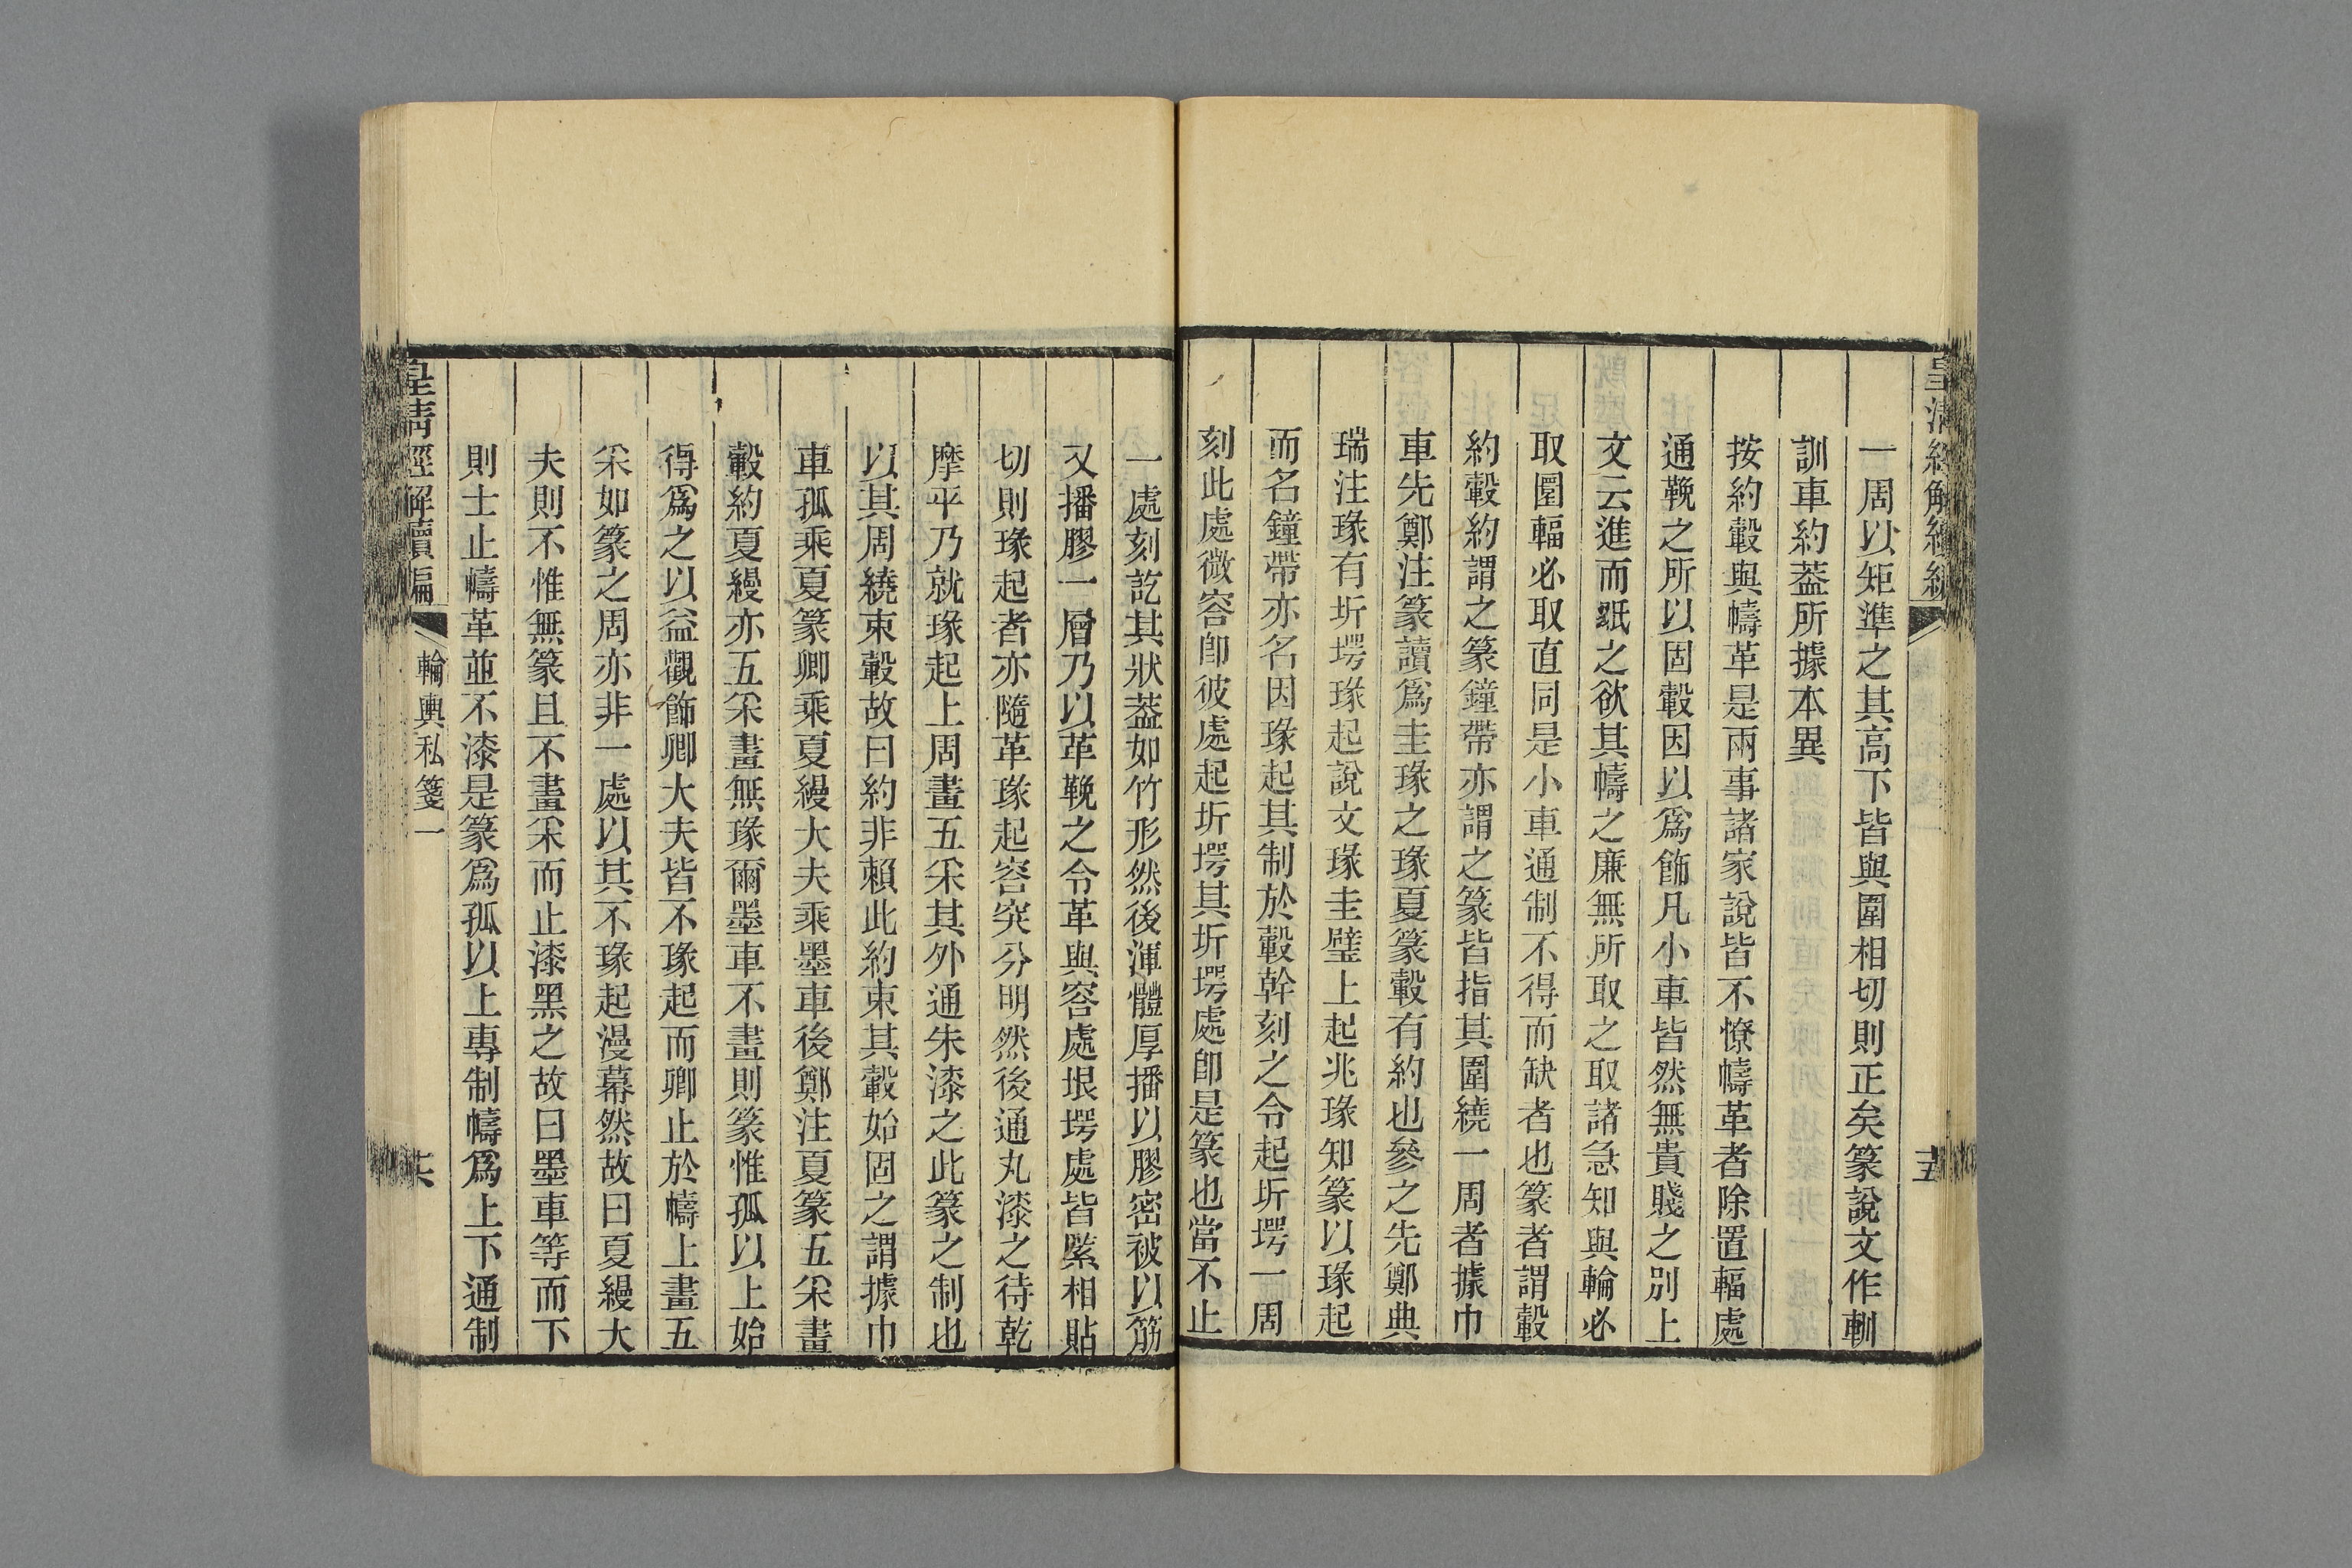 一周以矩準之其高下皆與圍相切則正矣篆說文作輑
訓車約葢所據本異
按約轂與幬革是兩事諸家說皆不憭幬革者除置輻處
通鞔之所以固轂因以爲飾凡小車皆然無貴賤之別上
文云進而眂之欲其幬之廉無所取之取諸急知與輪必
取圜輻必取直同是小車通制不得而缺者也篆者謂轂
約轂約謂之篆鐘帶亦謂之篆皆指其圍繞一周者據巾
車先鄭注篆讀爲圭瑑之瑑夏篆轂有約也參之先鄭典
瑞注瑑有圻堮瑑起說文瑑圭璧上起兆瑑知篆以瑑起
而名鐘帶亦名因瑑起其制於轂幹刻之令起圻堮一周
刻此處微容卽彼處起圻堮其圻堮處卽是篆也當不止
一處刻訖其狀葢如竹形然後渾體厚播以膠密被以筋
又播膠一層乃以革鞔之令革與容處垠堮處皆緊相貼
切則瑑起者亦隨革瑑起容突分明然後通丸漆之待乾
摩平乃就瑑起上周畫五采其外通朱漆之此篆之制也
以其周繞束轂故曰約非賴此約束其轂始固之謂據巾
車孤乘夏篆卿乘夏縵大夫乘墨車後鄭注夏篆五采畫
轂約夏縵亦五采畫無瑑爾墨車不畫則篆惟孤以上始
得爲之以益觀飾卿大夫皆不瑑起而卿止於幬上畫五
采如篆之周亦非一處以其不瑑起漫幕然故曰夏縵大
夫則不惟無篆且不畫采而止漆黑之故曰墨車等而下
則士止幬革並不漆是篆爲孤以上專制幬爲上下通制
皇清經解續編
輪輿私箋一